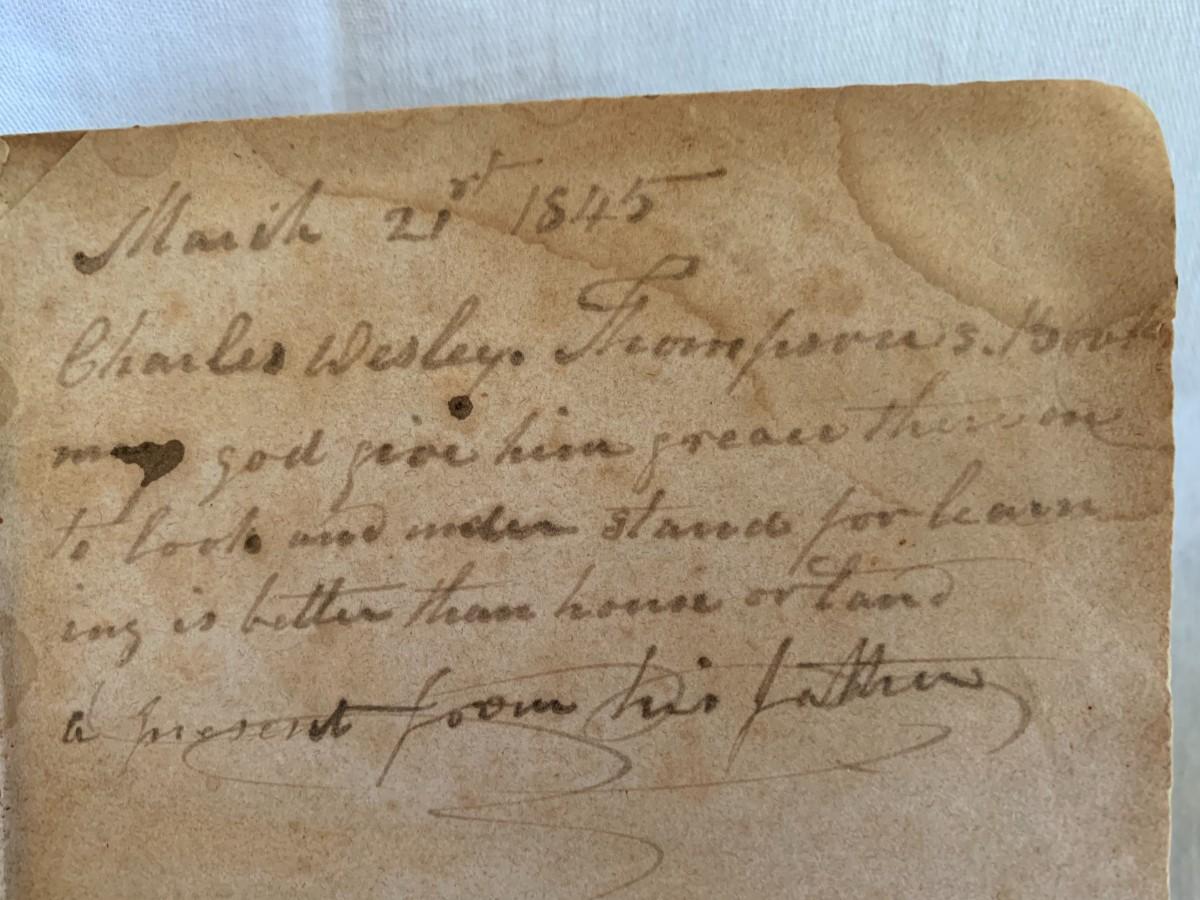 March 21st 1845
Charles Wesley. Thompson s. Book
may god give him greace there in
to look and under stand for learn
ing is better than house or land
a present from his father